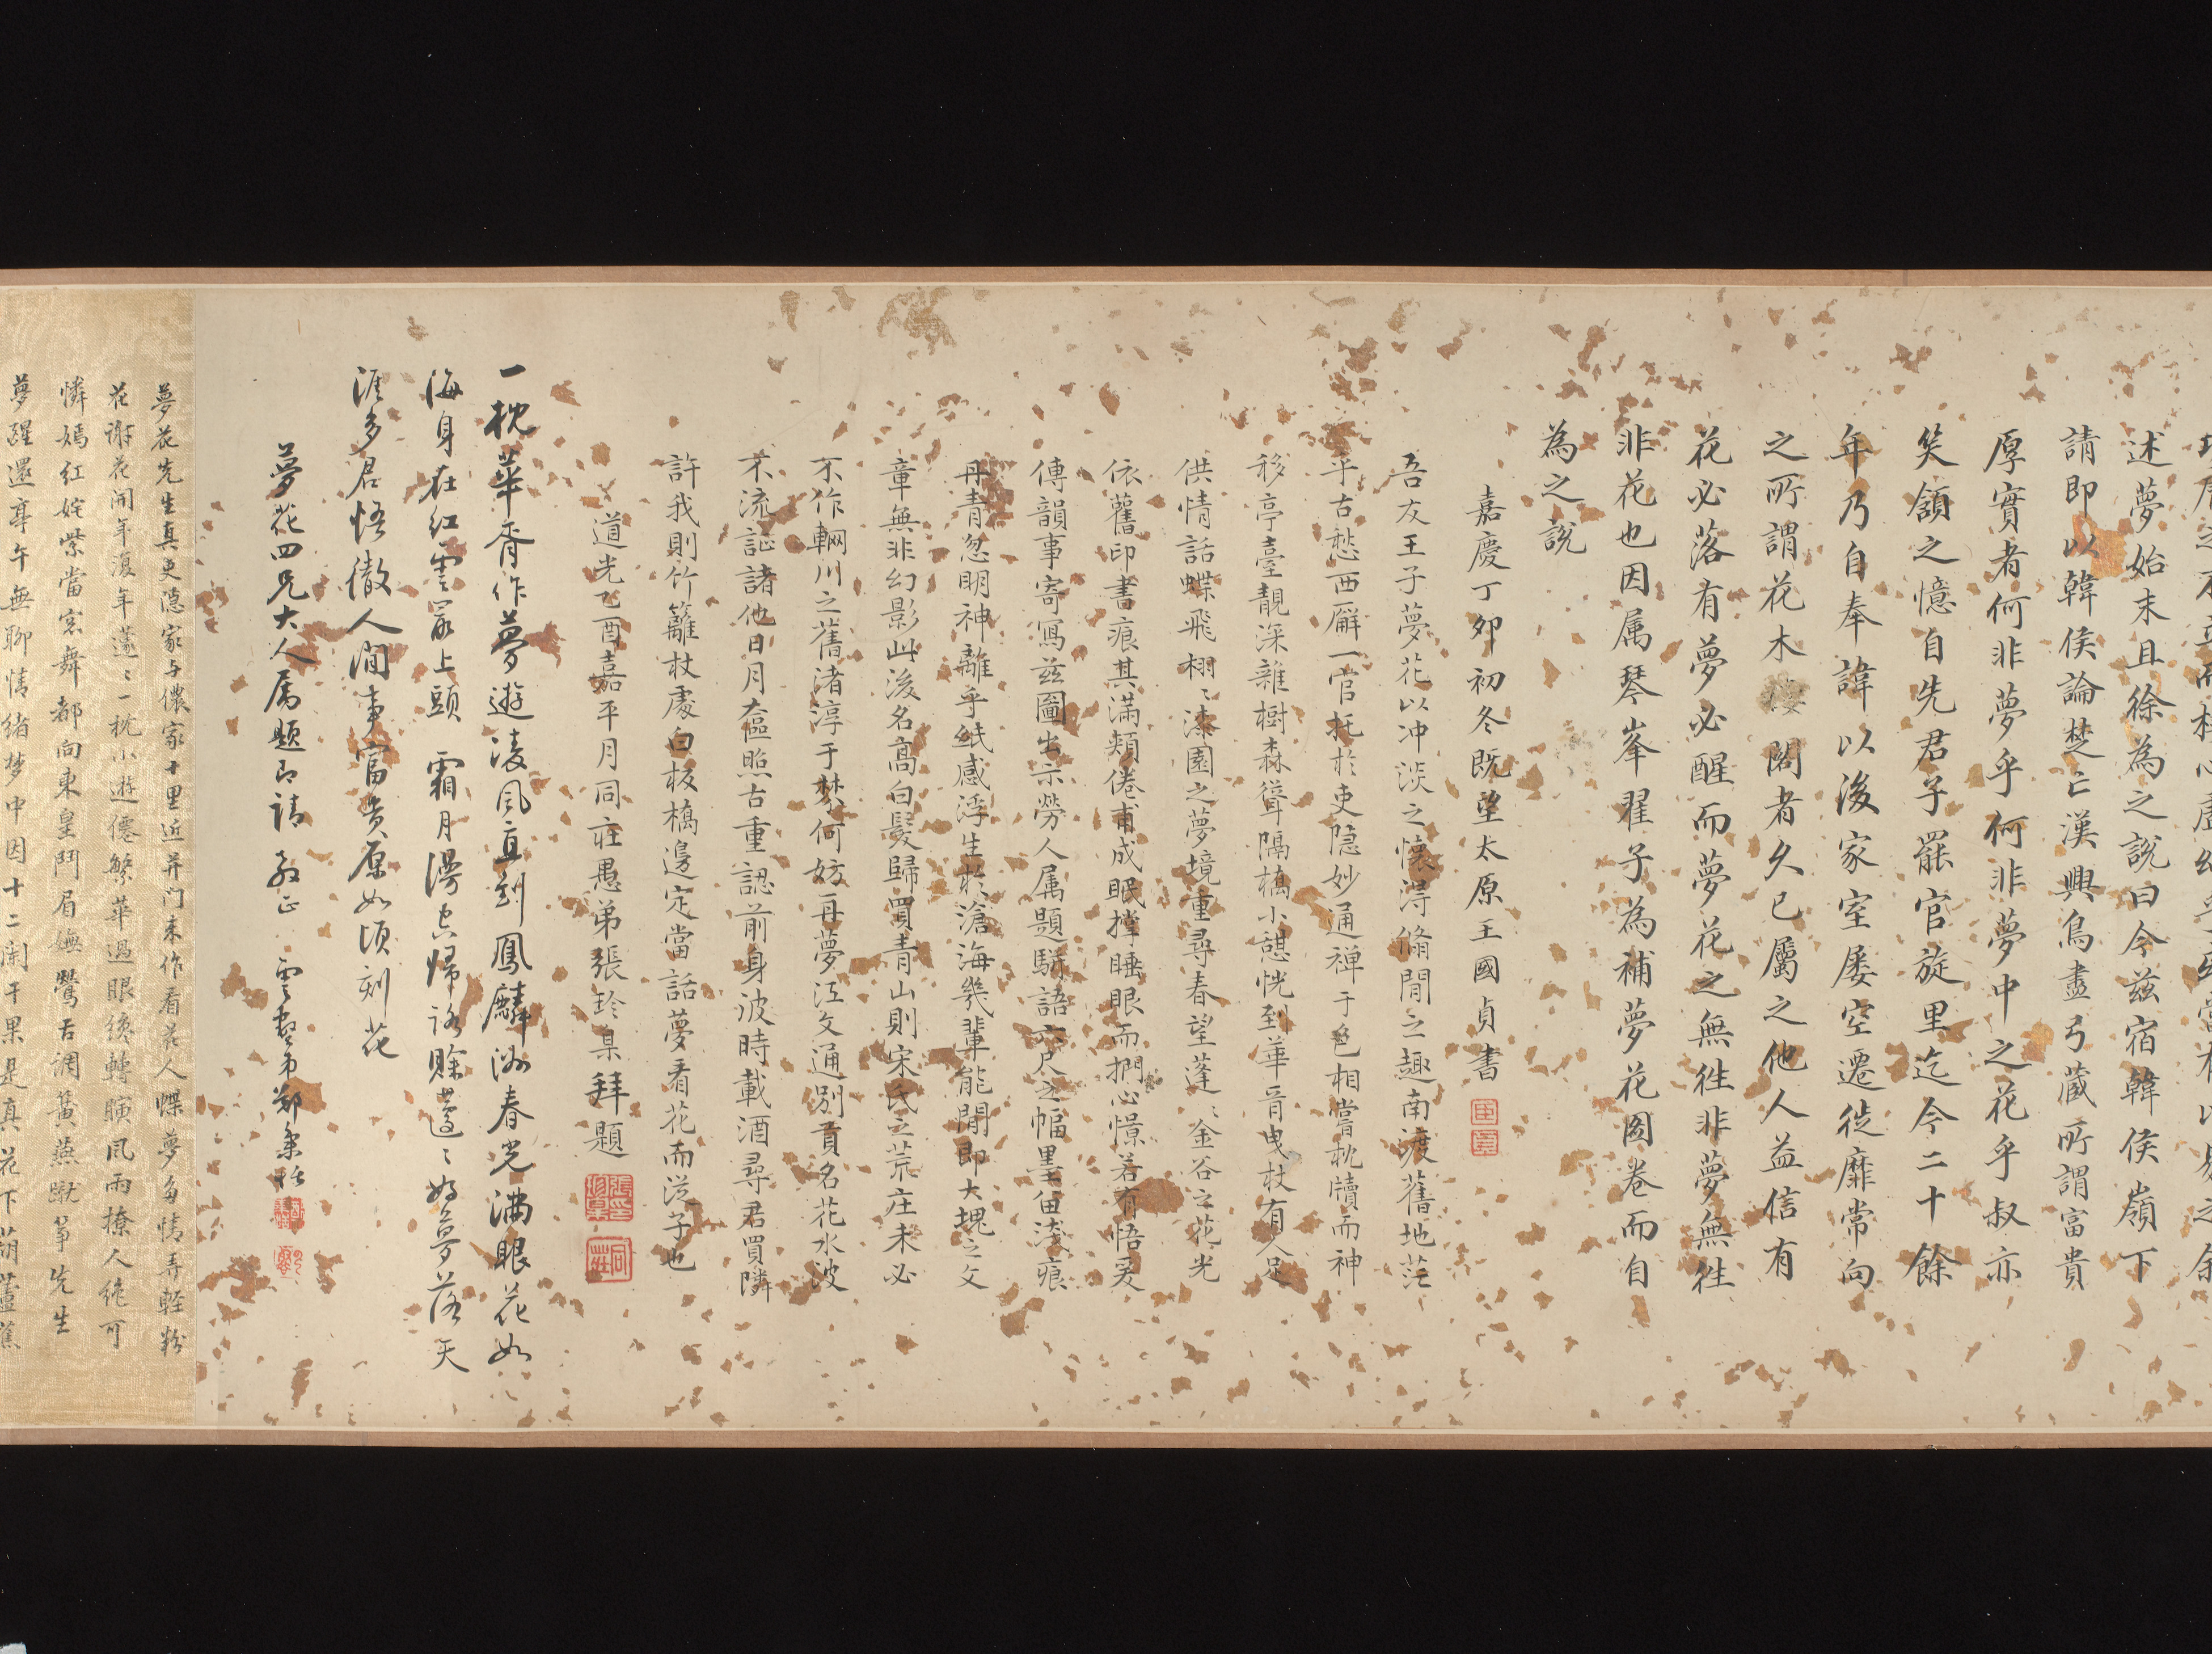 述夢始末且徐為之說曰今茲宿韓侯嶺下
請即以韓侯論楚亡漢興鳥盡弓藏所謂富貴
厚實者何非夢乎何非夢中之花乎叔亦
笑頷之憶自先君子罷官旋里迄今二十餘
年乃自奉諱以後家室屢空遷徙靡常向
之所謂花木樓閣者久已屬之他人益信有
花必落有夢必醒而夢花之無往非夢無往
非花也因属琴峯翟子為補夢花圖卷而自
為之說
嘉慶丁卯初冬既望太原王國貞書
吾友王子夢花以冲淡之懷得翛閒之趣南渡舊地茫
乎古愁西廨一官托於吏隐妙通禅于色相嘗枕牘而神
移亭臺靚深雜樹森聳隔橋小憩恍到華胥曳杖有人足
供情話蝶飛栩〻漆園之夢境重尋春望蓬〻金谷之花光
依舊印書痕其滿頰倦甫成眠撑睡眼而捫心憬若有悟爰
傳韻事寄寫茲圖出示勞人属題駢語六尺之幅墨留淺痕
丹青忽明神離乎紙感浮生於滄海幾輩能閒即大塊之文
章無非幻影此後名高白髮歸買青山則宋氏之荒庄未必
不作輞川之舊渚淳于棼何妨再夢江文通別賁名花水波
不流証諸他日月奩照古重認前身波時載酒尋君買隣
許我則竹籬杖處白板橋邊定當話夢看花而從子也
道光乙酉嘉平月同莊愚弟張玲臬拜題
一枕華胥作夢遊凌風直到鳳麟洲春光满眼花如
海身在红雲最上頭 霜月漫空歸路賒蘧〻好夢落天
涯多君悟徹人間事富貴原如頃刻花
夢花四兄大人属題即請 教正 雲壑弟鄭秉
夢花先生真吏隐家与儂家十里近并门来作看花人蝶夢多情弄輕粉
花謝花開年復年蘧〻一枕小遊僊繁華過眼倏轉瞚風雨撩人絶可
憐嫣红姹紫當窓舞都向東皇鬥眉嫵鶯舌調簧燕蹴筝先生
夢醒還亭午無聊情緒梦中因十二闌干果是真花下葫蘆蕉